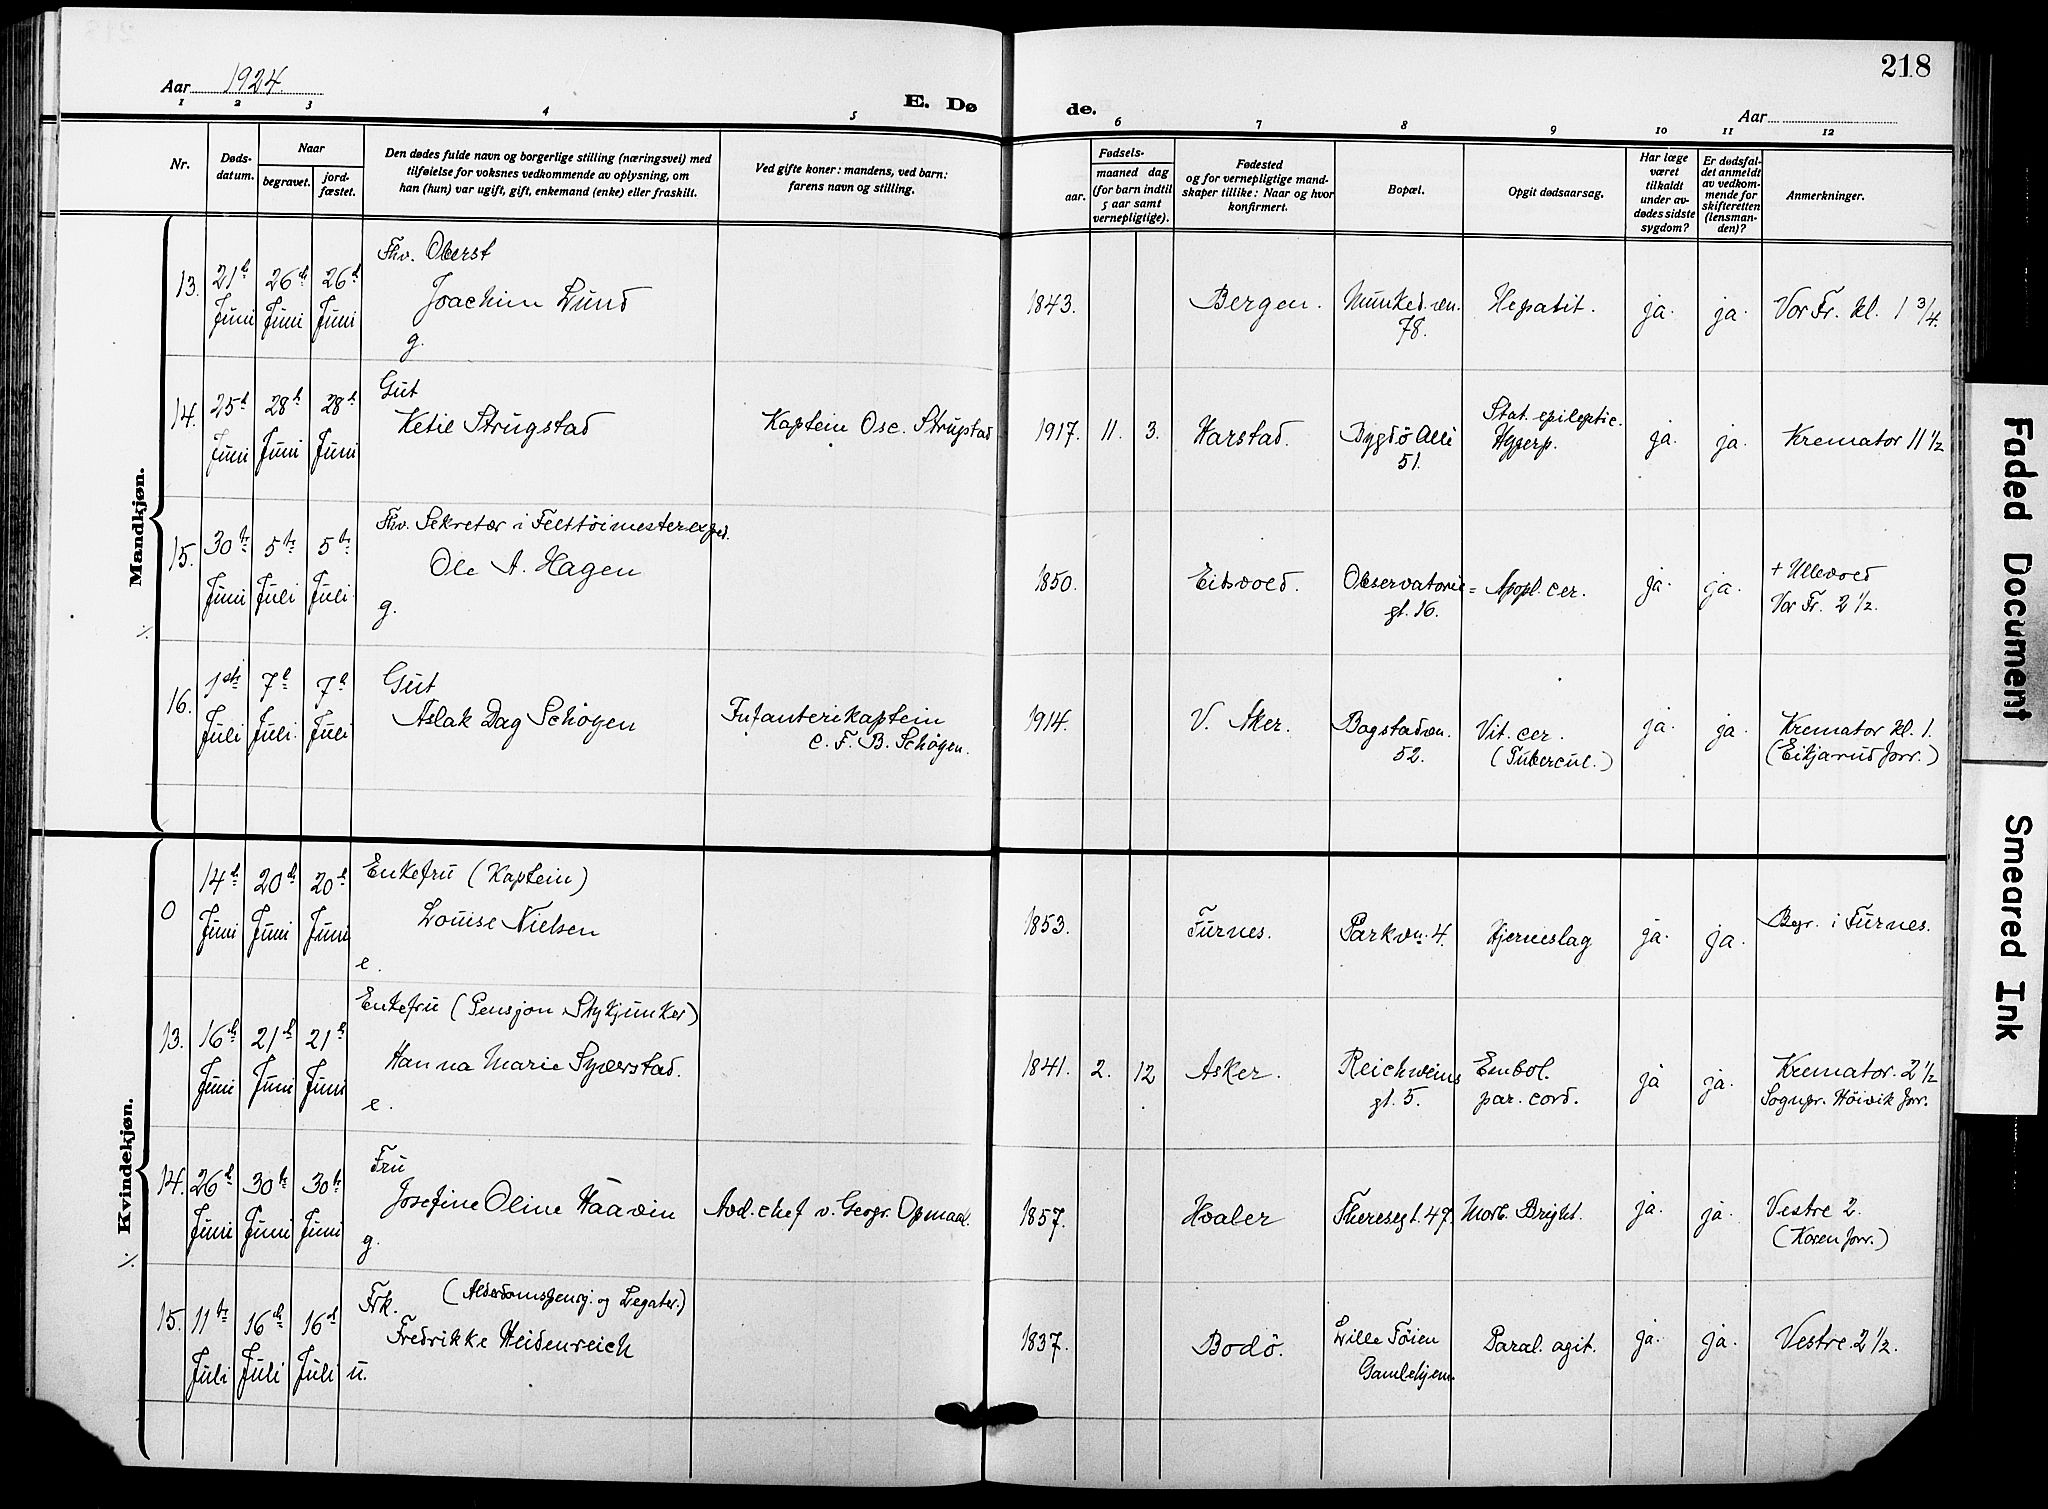 218
Aar 1924.
E. Dø
de.
Aar
1 2 3 4 5 6 7 8 9 10 11 12
Nr.
Døds-
datum.
Naar
begravet.
jord-
fæstet.
Den dødes fulde navn og borgerlige stilling (næringsvei) med
tilføielse for voksnes vedkommende av oplysning, om
han (hun) var ugift, gift, enkemand (enke) eller fraskilt.
Ved gifte koner: mandens, ved barn:
farens navn og stilling.
Fødsels-
aar.
maaned dag
(for barn indtil
5 aar samt
vernepligtige).
Fødested
og for vernepligtige mand-
skaper tillike: Naar og hvor
konfirmert.
Bopæl.
Opgit dødsaarsag.
Har læge
været
tilkaldt
under av-
dødes sidste
sygdom?
Er dødsfal-
det anmeldt
av vedkom-
mende for
skifteretten
(lensman-
den)?
Anmerkninger.
Mandkjøn.
13. 21d Juni 26de Juni 26d Juni
Fhv. Oberst
Joachim Lund
g.
1843. Bergen. Munkedvn.
78.
Hepatit. ja. ja. Vor Fr. kl. 1 3/4.
14. 25d Juni 28d Juni 28d Juni
Gut
Ketil Strugstad
Kaptein Osc. Strugstad
1917. 11. 3. Harstad. Bygdö Alle
51.
Stat. epileptic.
Hyperp.
ja. ja. Kremator 11 1/2
15. 30te Juni 5te Juli 5te Juli
Fhv. Sekretær i Felttøimesterexped.
Ole A. Hagen
g.
1850. Eidsvold. Observatorie=
gt. 16.
Apopl. cer. ja. ja. + Ullevold
Vor Fr. 2 1/2.
16. 1ste Juli 7d Juli 7d Juli
Gut
Aslak Dag Schøyen
Infanterikaptein
C. F. B. Schøyen.
1914. V. Aker. Bogstadvn.
52.
Vit. cer.
(Tubercul.)
ja. ja. Kremator kl. 1.
(Eikjarud forr.)
Kvindekjøn.
0 14d Juni 20d Juni 20d Juni
Enkefru (Kaptein)
Louise Nielsen
e.
1853. Furnes. Parkvn. 4. Hjerneslag ja. ja. Begr. i Furnes.
13. 16de Juni 21d Juni 21d Juni
Enkefru (Pensjon Stykjunker)
Hanna Marie Syverstad.
e.
1841. 2. 12 Asker. Reichweins
gt. 5.
Embol.
par. cord.
ja ja. Kremator. 2 1/2
Sognpr. Høivik forr.
14. 26d Juni 30te Juni 30te Juni
Fru
Josefine Oline Haavin
g.
Avd. chef v. Geogr. Opmaal.
1857. Hvaler Theresegt. 47. Morb. Bright. ja. ja. Vestre 2.
(Koren forr.)
15. 11te Juli 16d Juli 16d Juli
Frk. (Alderdomspensj. og Legater.)
Fredrikke Heidenreich
u.
1837. Bodö. Lille Tøien
Gamlehjem.
Paral. agit. ja. ja. Vestre. 2 1/2.
Faded Document
Smeared Ink